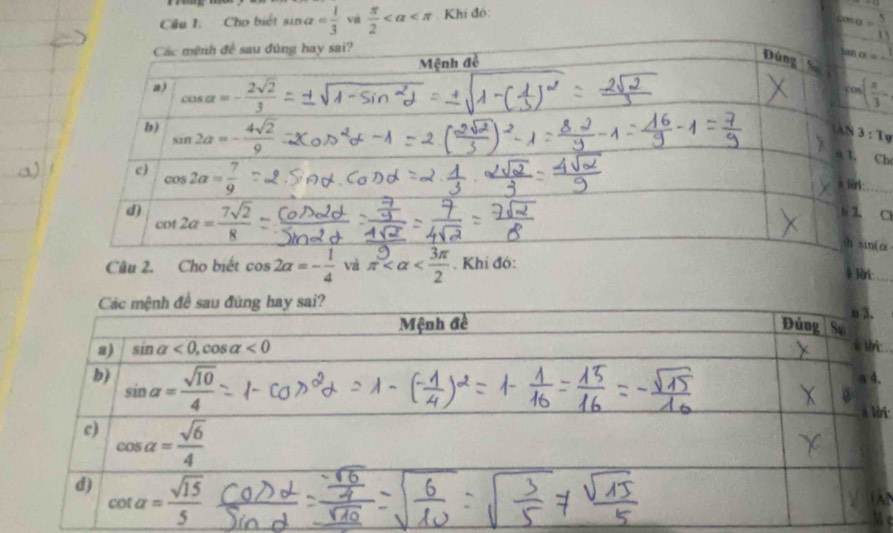 Câu 1. Cho biết sin α = 1/3 và π/2 < α < π. Khi đó:
Các mệnh đề sau đúng hay sai?
Mệnh đề Đúng
a) cos α = -2√2/3 = ±√(1 - sin²α) = ±√(1 - (1/3)²) = 2√2/3 X
b) sin 2α = -4√2/9 = 2cos²α - 1 = 2.(2√2/3)² - 1 = 8.2/9 - 1 = 16/9 - 1 = 7/9
c) cos 2α = 7/9 = 2.Sinα.Cosα = 2.1/3.2√2/3 = 4√2/9
d) cot 2α = 7√2/8 = Cos2α/Sin2α = (7/9)/(4√2/9) = 7/(4√2) = 7√2/8 X
Câu 2. Cho biết cos 2α = -1/4 và π < α < 3π/2. Khi đó:
Các mệnh đề sau đúng hay sai?
Mệnh đề Đúng
a) sin α < 0, cos α < 0 X
b) sin α = √10/4 = 1 - cos²α = 1 - (-1/4)² = 1 - 1/16 = 15/16 = -√15/16 X
c) cos α = √6/4 X
d) cot α = √15/5 Cosα/Sinα = (-√6/4)/(-√10) = √(6/10) = √(3/5) ≠ √15/5